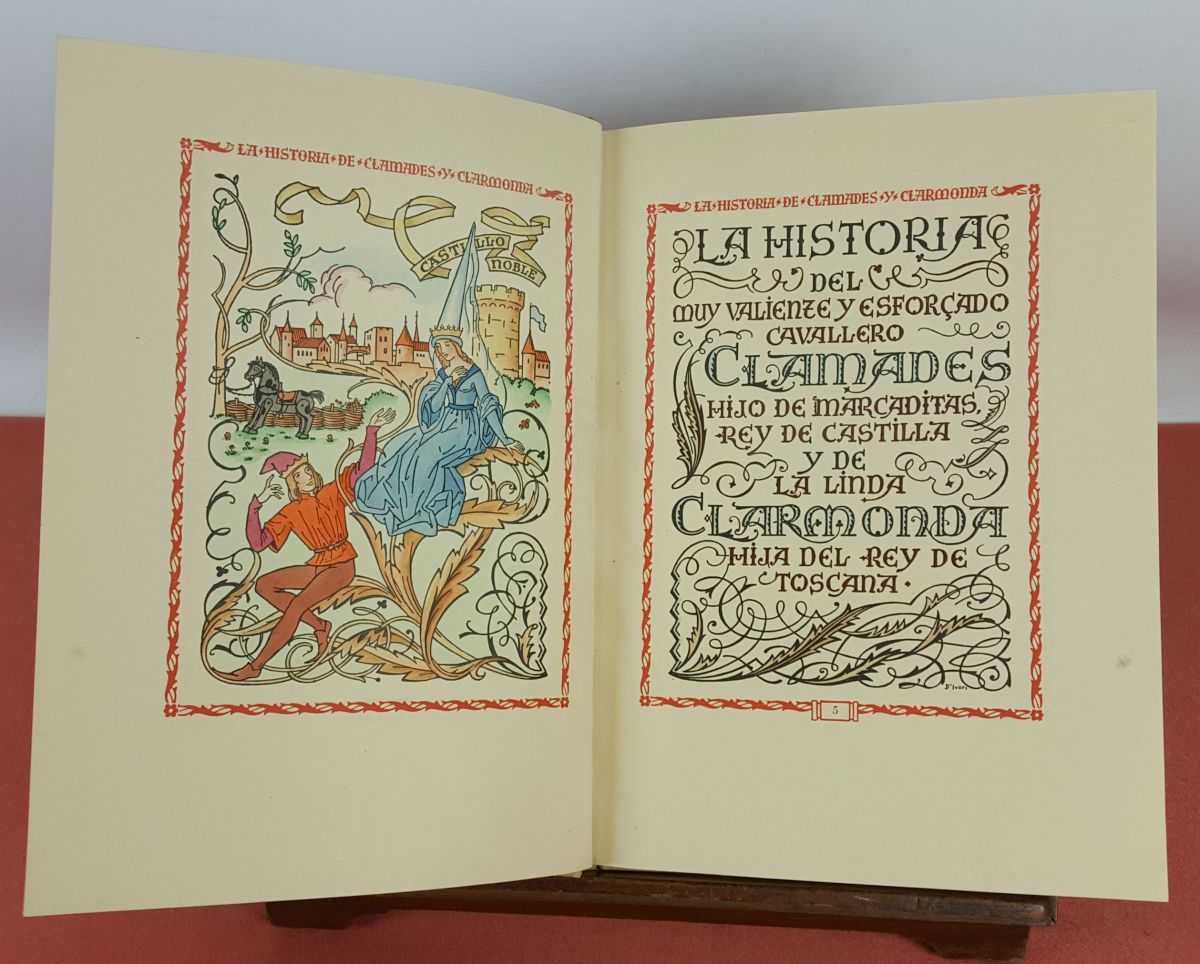 LA·HISTORIA·DE·CLAMADES·Y·CLARMONDA
CASTILLO
NOBLE
LA·HISTORIA·DE·CLAMADES·Y·CLARMONDA
LA HISTORIA
DEL
MUY VALIENTE Y ESFORÇADO
CAVALLERO
CLAMADES
HIJO DE MARCADITAS,
REY DE CASTILLA
Y DE
LA LINDA
CLARMONDA
HIJA DEL REY DE
TOSCANA·
D'Ivori
5